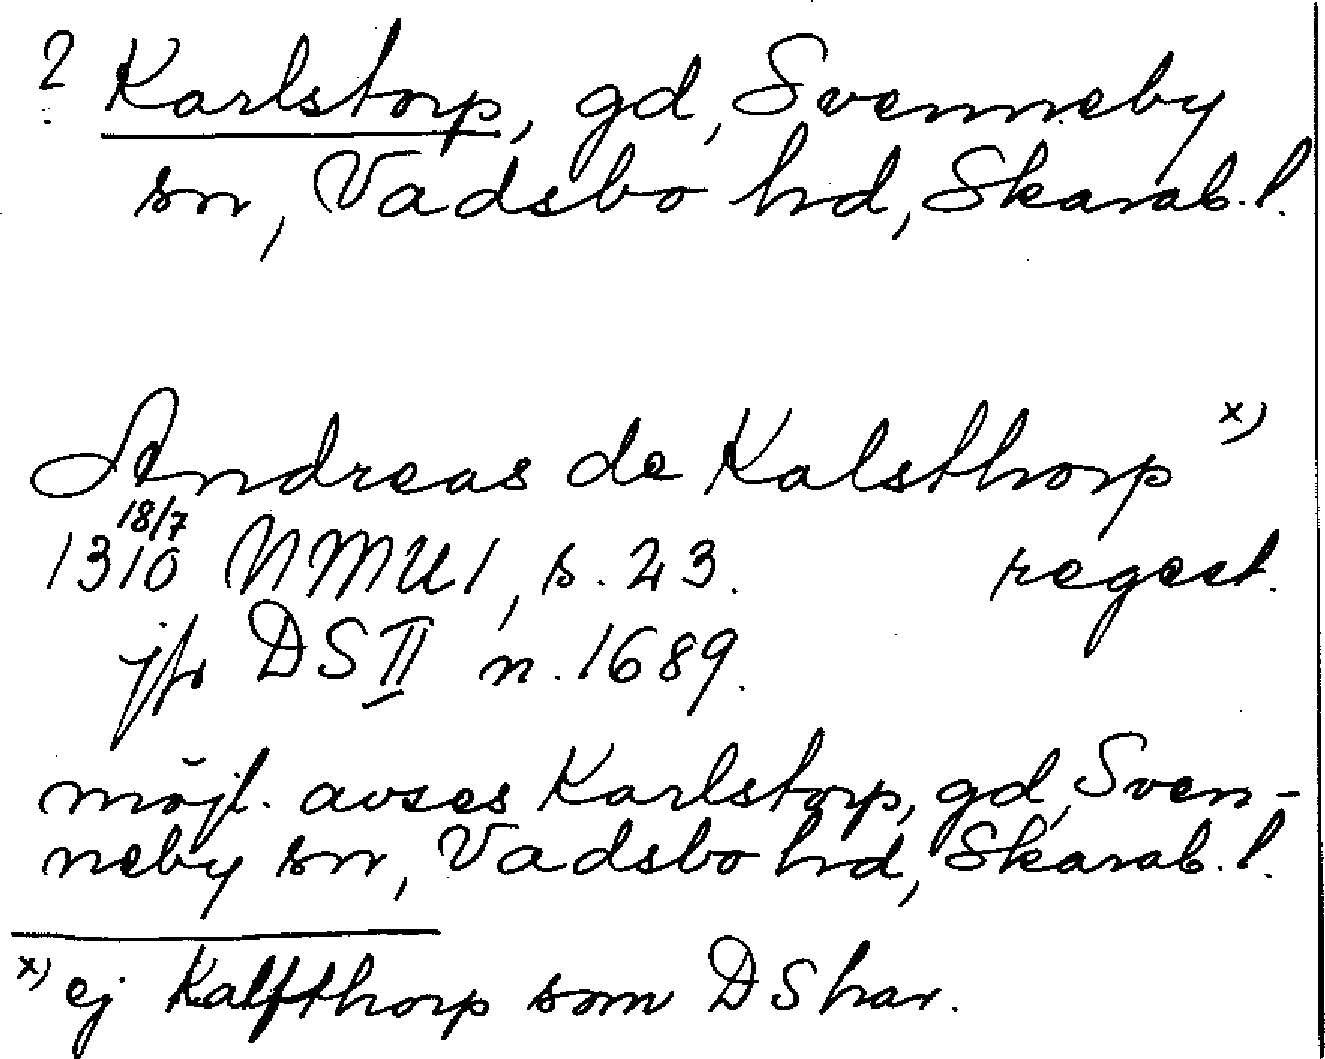 ? Karlstorp, gd, Svenneby
sn, Vadsbo hd, Skarab. l.
Andreas de Kalsthorp x)
18/7
1310 NMU 1, s. 23. regest.
jfr DS II n. 1689.
möjl. avses Karlstorp, gd, Sven-
neby sn, Vadsbo hd, Skarab. l.
x) ej Kalfthorp som DS har.